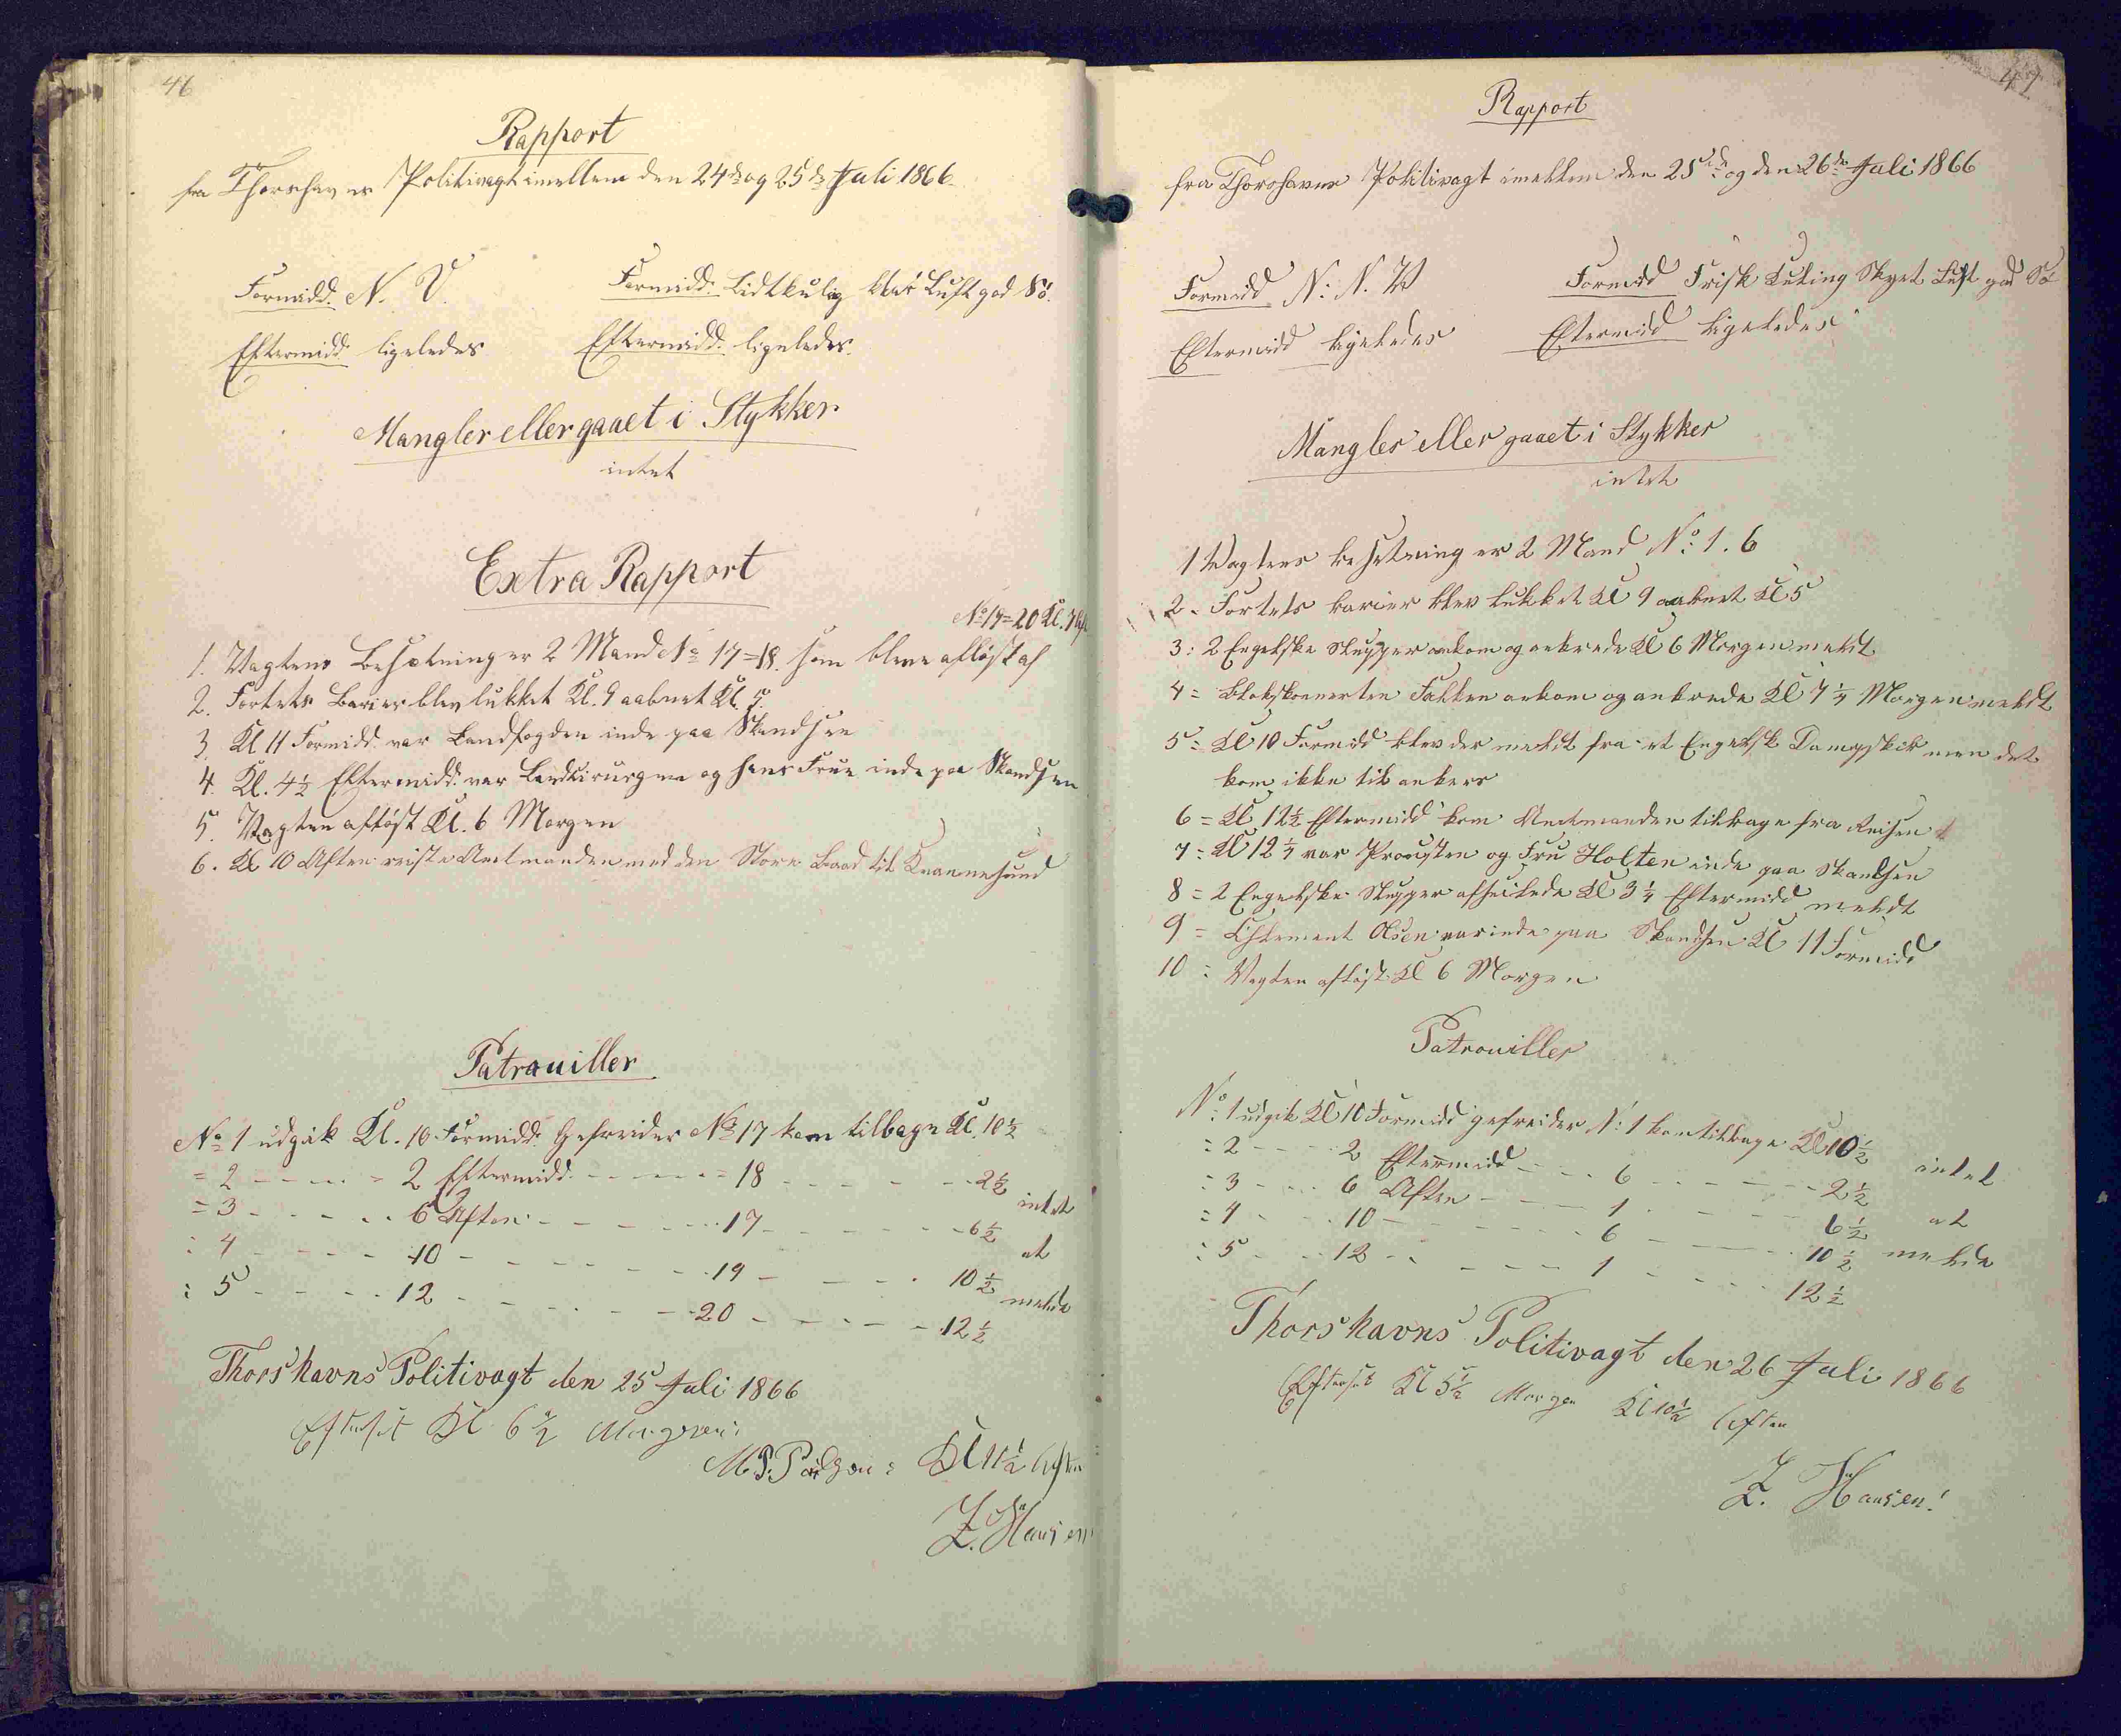 46
Rapport
fra Thorshavns Politivagt imellem den 24de og 25de Juli 1866.
Formidd. N. V. Formidd. Lidtkulig klar Luft god Sö.
Eftermidd. ligeledes Eftermidd. ligeledes.
Mangler eller gaaet i Stykker
intet
Extra Rapport
No 19=20 Kl. 7
1. Vagtens Besætning er 2 Mand No 17=18. som bleve aflöst af
2. Fortets Barier blev lukket Kl. 9 aabnet Kl. 5.
3. Kl 11 Formidd. var Landfogden inde paa Skandsen
4. Kl. 4½ Eftermidd. var Landkirurgen og hans Frue inde paa Skandsen
5. Vagten aflöst Kl. 6 Morgen
6. Kl 10 Aften reiste Amtmanden med den Store Baad til Qvannesund
Patrouiller
No 1 udgik Kl. 10 Formidd. Gefreider No 17 kom tilbage Kl. 10½
= 2 - - - - = 2 Eftermidd. - - - - = 18 - - - - - 2½ intet
= 3 - - - - 6 Aften - - - - - 17 - - - - - 6½ at
: 4 - - - - 10 - - - - - - 19 - - - - 10½ melde
: 5 - - - - 12 - - - - - - 20 - - - - - 12½
Thorshavns Politivagt den 25 Juli 1866
Efterset Kl 6½ Morgen:
M. P. Kl 11½ Aften
Z. Hansen
47
Rapport
fra Thorshavns Politivagt imellem den 25de og den 26de Juli 1866
Formidd N: N. V Formidd Frisk Kuling Skyet Luft god Sö
Eftermidd ligeledes Eftermidd ligeledes
Mangler eller gaaet i Stykker
intet
1 Vagtens besetning er 2 Mand No: 1. 6
2. Fortets barier blev lukket Kl 9 aabnet Kl 5
3: 2 Engelske Slupper ankom og ankrede Kl 6 Morgen meldt
4= Blokskonnerten Falken ankom og ankrede Kl 7¼ Morgen meldt
5= Kl 10 Formidd blev der meldt fra et Engelsk Dampskib men det
kom ikke til ankers
6= Kl 12½ Eftermidd kom Amtmanden tilbage fra Reisen
7: Kl 12¼ var Provsten og Fru Holten inde paa Skandsen
8= 2 Engelske Slupper afseilede Kl 3¼ Eftermidd meldt
9= Olsen var inde paa Skandsen Kl 11 Formidd
10: Vagten aflöst Kl 6 Morgen
Patrouiller
No: 1 udgik Kl 10 Formidd gefreider N: 1 kom tilbage Kl 10½
: 2 - - - - 2 Eftermidd - - - 6 - - - - - 2½ intet
: 3 - - - 6 Aften - - - 1 - - - - 6½ at
: 4 - - - 10 - - - - - 6 - - - - 10½ melde
: 5 - - - 12 - - - - - 1 - - - - 12½
Thorshavns Politivagt den 26 Juli 1866
Efterset Kl 5½ Morgen Kl 10½ Aften
Z. Hansen!